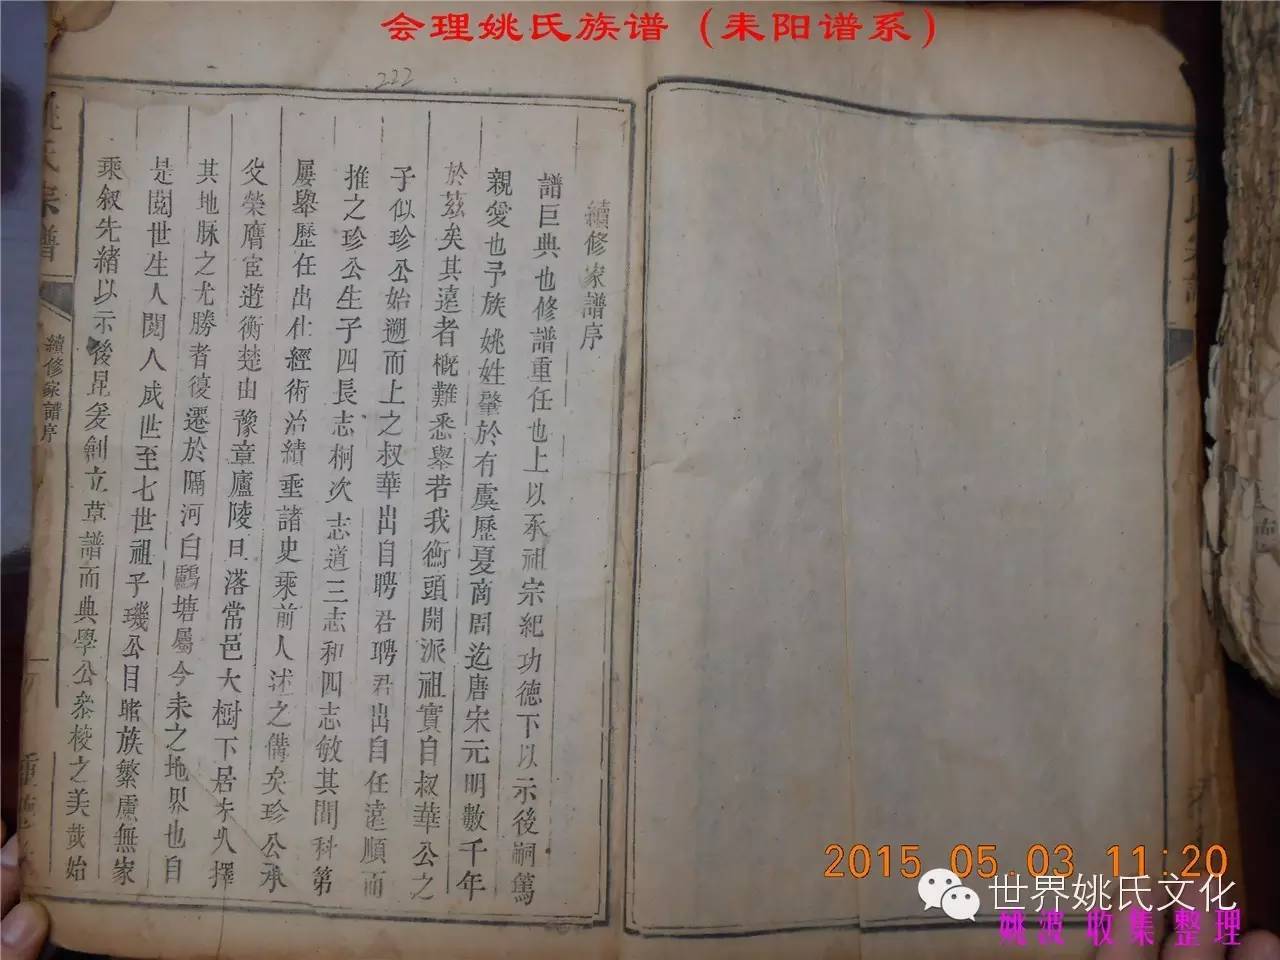 会理姚氏族谱（耒阳谱系）
222
續修家譜序
譜巨典也修譜重任也上以承祖宗紀功德下以示後嗣篤
親愛也予族姚姓肇於有虞歷夏商周迄唐宋元明數千年
於茲矣其遠者概難悉舉若我衡頭開派祖實自叔華公之
子似珍公始遡而上之叔華出自聘君聘君出自任遠順而
推之珍公生子四長志桐次志道三志和四志敏其間科第
屢舉歷任出仕經術治績垂諸史乘前人述之備矣珍公承
父榮膺宦遊衡楚由豫章廬陵日落常邑大樹下居未久擇
其地脉之尤勝者復遷於隔河白鷳塘屬今耒之地界也自
是閱世生人閱人成世至七世祖子璣公目睹族繁慮無家
乘叙先緒以示後昆爰創立草譜而典學公叅校之美哉始
姚氏宗譜
續修家譜序
一
重
2015.05.03 11:20
世界姚氏文化
姚波 收集整理